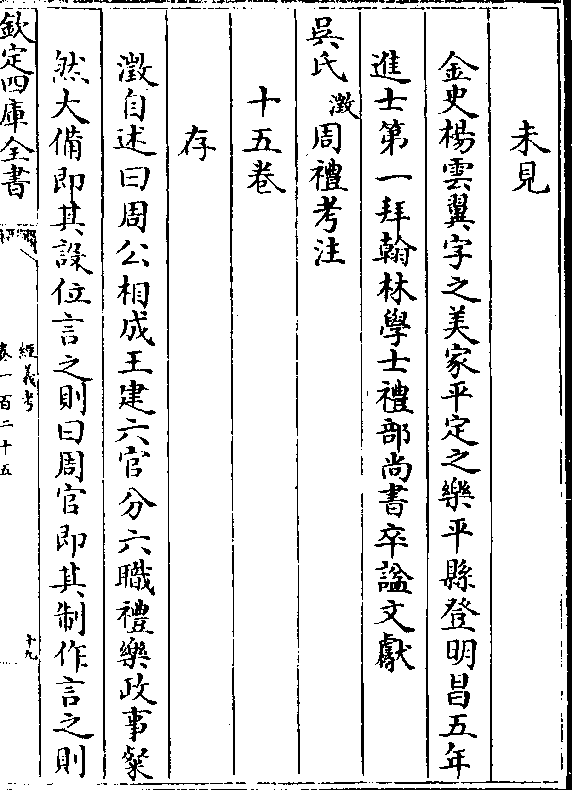 未見
金史楊雲翼字之美家平定之樂平縣登明昌五年
進士第一拜翰林學士禮部尚書卒諡文獻
吳氏澂周禮考注
十五卷
存
澂自述曰周公相成王建六官分六職禮樂政事粲
然大備即其設位言之則曰周官即其制作言之則
欽定四庫全書
經義考
卷一百二十五
十九